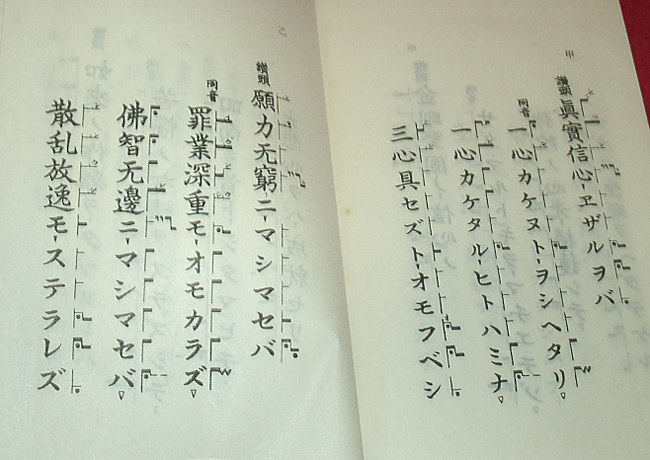 甲
讃頭 眞實信心ヱザルヲバ
同音 一心カケヌトヲシヘタリ
一心カケタルヒトハミナ
三心具セズトオモフベシ
乙
讃頭 願力无窮ニマシマセバ
同音 罪業深重モオモカラズ
佛智无邊ニマシマセバ
散乱放逸モステラレズ